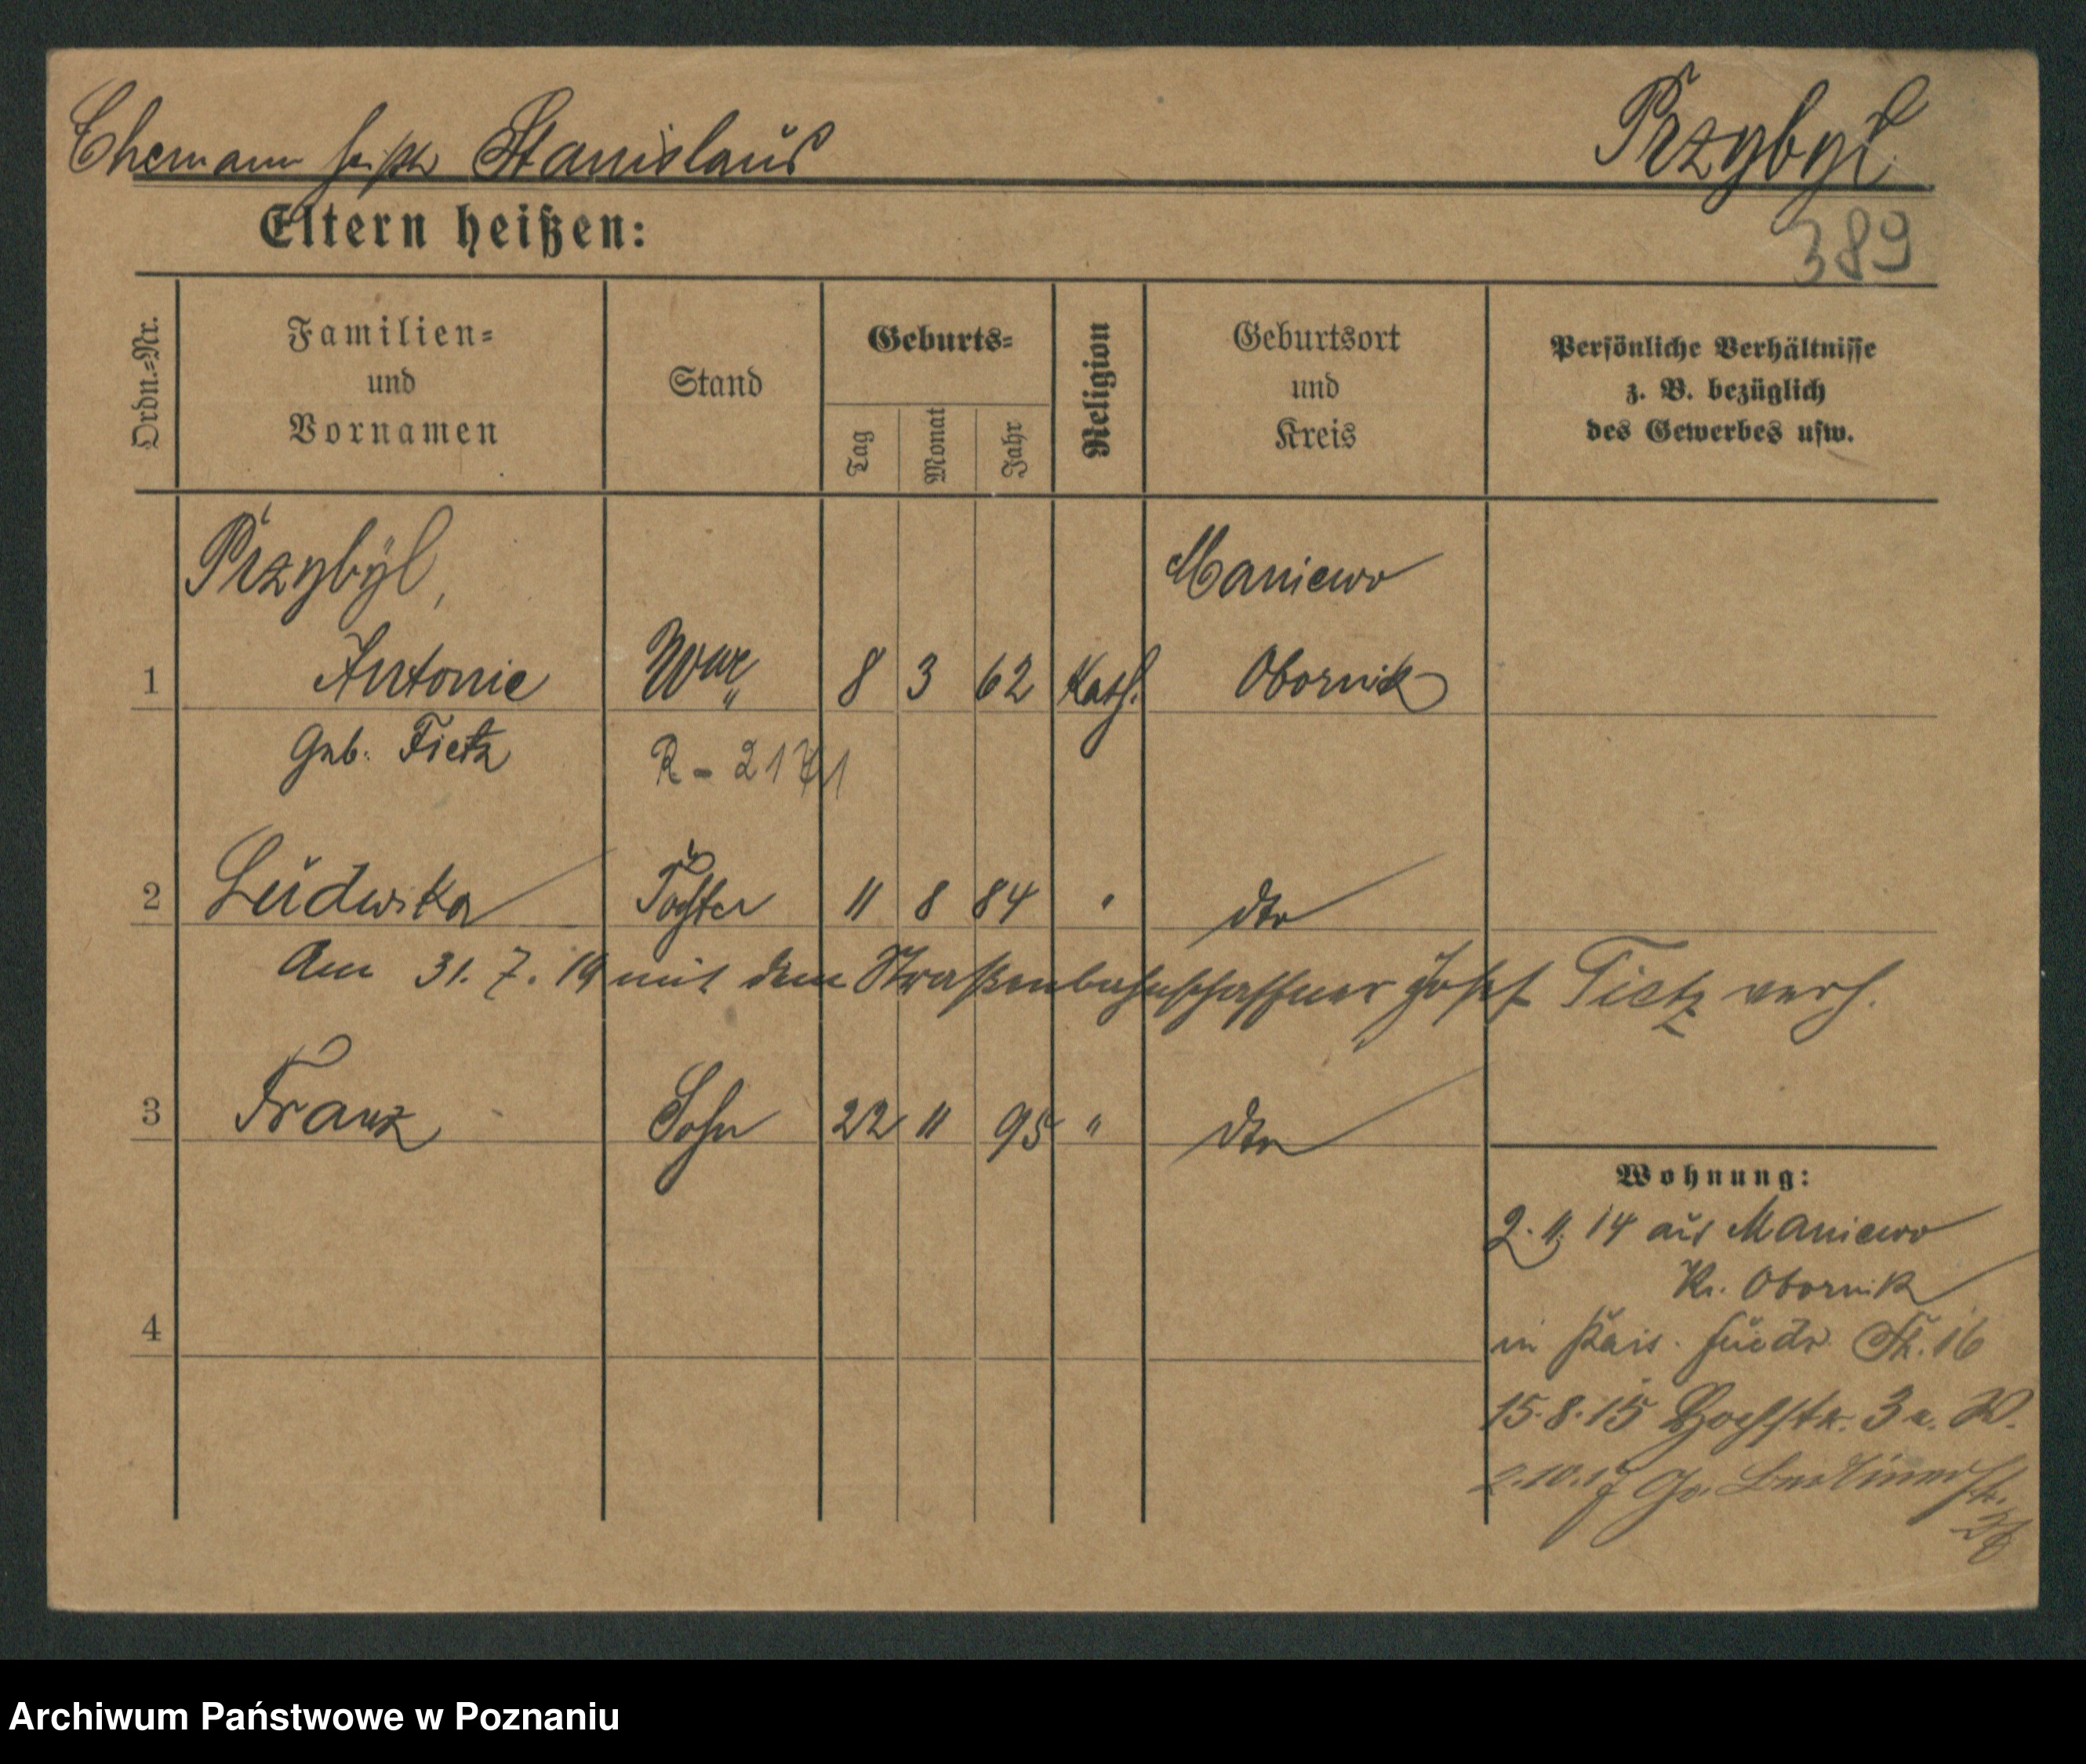 Ehemann heißt Stanislaus Przybyl
Eltern heißen:
389
Ordn.-Nr. Familien- und Vornamen Stand Geburts- Tag Monat Jahr Religion Geburtsort und Kreis Persönliche Verhältnisse z. B. bezüglich des Gewerbes usw.
Przybyl, Maniewo
1 Antonie Wwe 8 3 62 Kath. Obornik
Geb. Tietz R - 2171
2 Ludwika Tochter 11 8 84 " dto
Am 31. 7. 19 mit dem Straßenbahnschaffner Josef Tietz verh.
3 Franz Sohn 22 11 95 " dto
Wohnung:
2. 11. 14 aus Maniewo
Kr. Obornik
4
in Kais. Friedr. Str. 16
15. 8. 15 Hochstr. 3 a. W.
2. 10. 17 Gr. Berlinerstr.